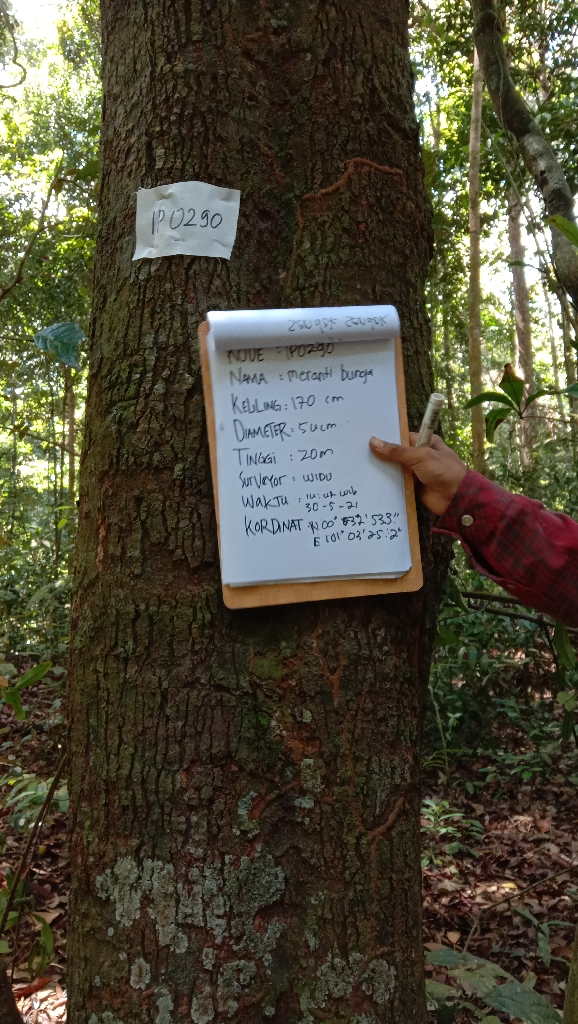 IP0290
KODE : IP0290
NAMA : Meranti bunga
KELILING : 170 cm
DIAMETER : 54 cm
TINGGI : 20 m
SURVEYOR : WIDU
WAKTU : wib
30-5-21
KORDINAT N 00° 32' 53.3"
E 101° 03' 25.2"